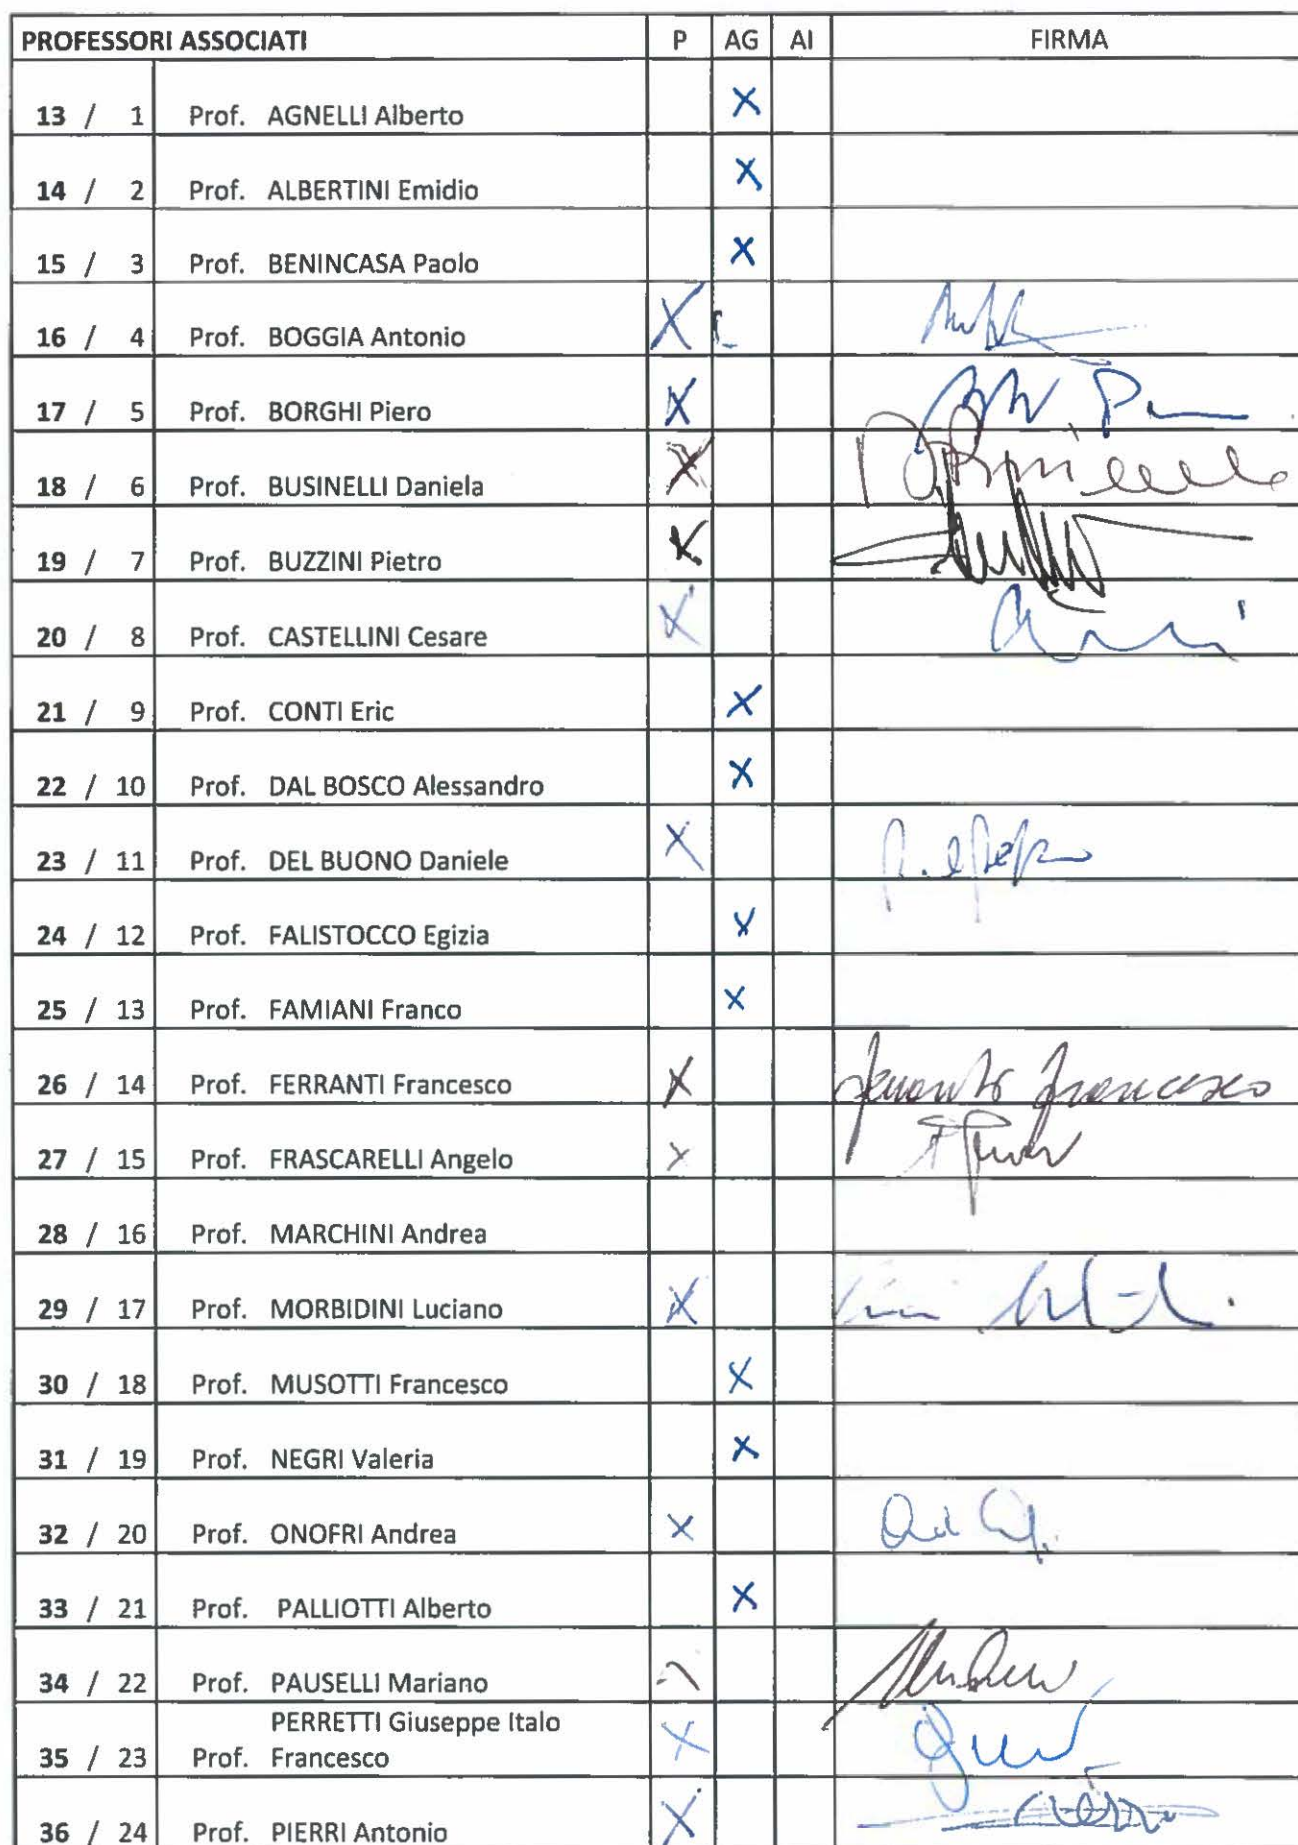 PROFESSORI ASSOCIATI P AG AI FIRMA
13 / 1 Prof. AGNELLI Alberto X
14 / 2 Prof. ALBERTINI Emidio X
15 / 3 Prof. BENINCASA Paolo X
16 / 4 Prof. BOGGIA Antonio X
17 / 5 Prof. BORGHI Piero X
18 / 6 Prof. BUSINELLI Daniela X
19 / 7 Prof. BUZZINI Pietro X
20 / 8 Prof. CASTELLINI Cesare X
21 / 9 Prof. CONTI Eric X
22 / 10 Prof. DAL BOSCO Alessandro X
23 / 11 Prof. DEL BUONO Daniele X
24 / 12 Prof. FALISTOCCO Egizia X
25 / 13 Prof. FAMIANI Franco X
26 / 14 Prof. FERRANTI Francesco X Ferranti Francesco
27 / 15 Prof. FRASCARELLI Angelo X
28 / 16 Prof. MARCHINI Andrea
29 / 17 Prof. MORBIDINI Luciano X
30 / 18 Prof. MUSOTTI Francesco X
31 / 19 Prof. NEGRI Valeria X
32 / 20 Prof. ONOFRI Andrea X
33 / 21 Prof. PALLIOTTI Alberto X
34 / 22 Prof. PAUSELLI Mariano
PERRETTI Giuseppe Italo
35 / 23 Prof. Francesco X
36 / 24 Prof. PIERRI Antonio X